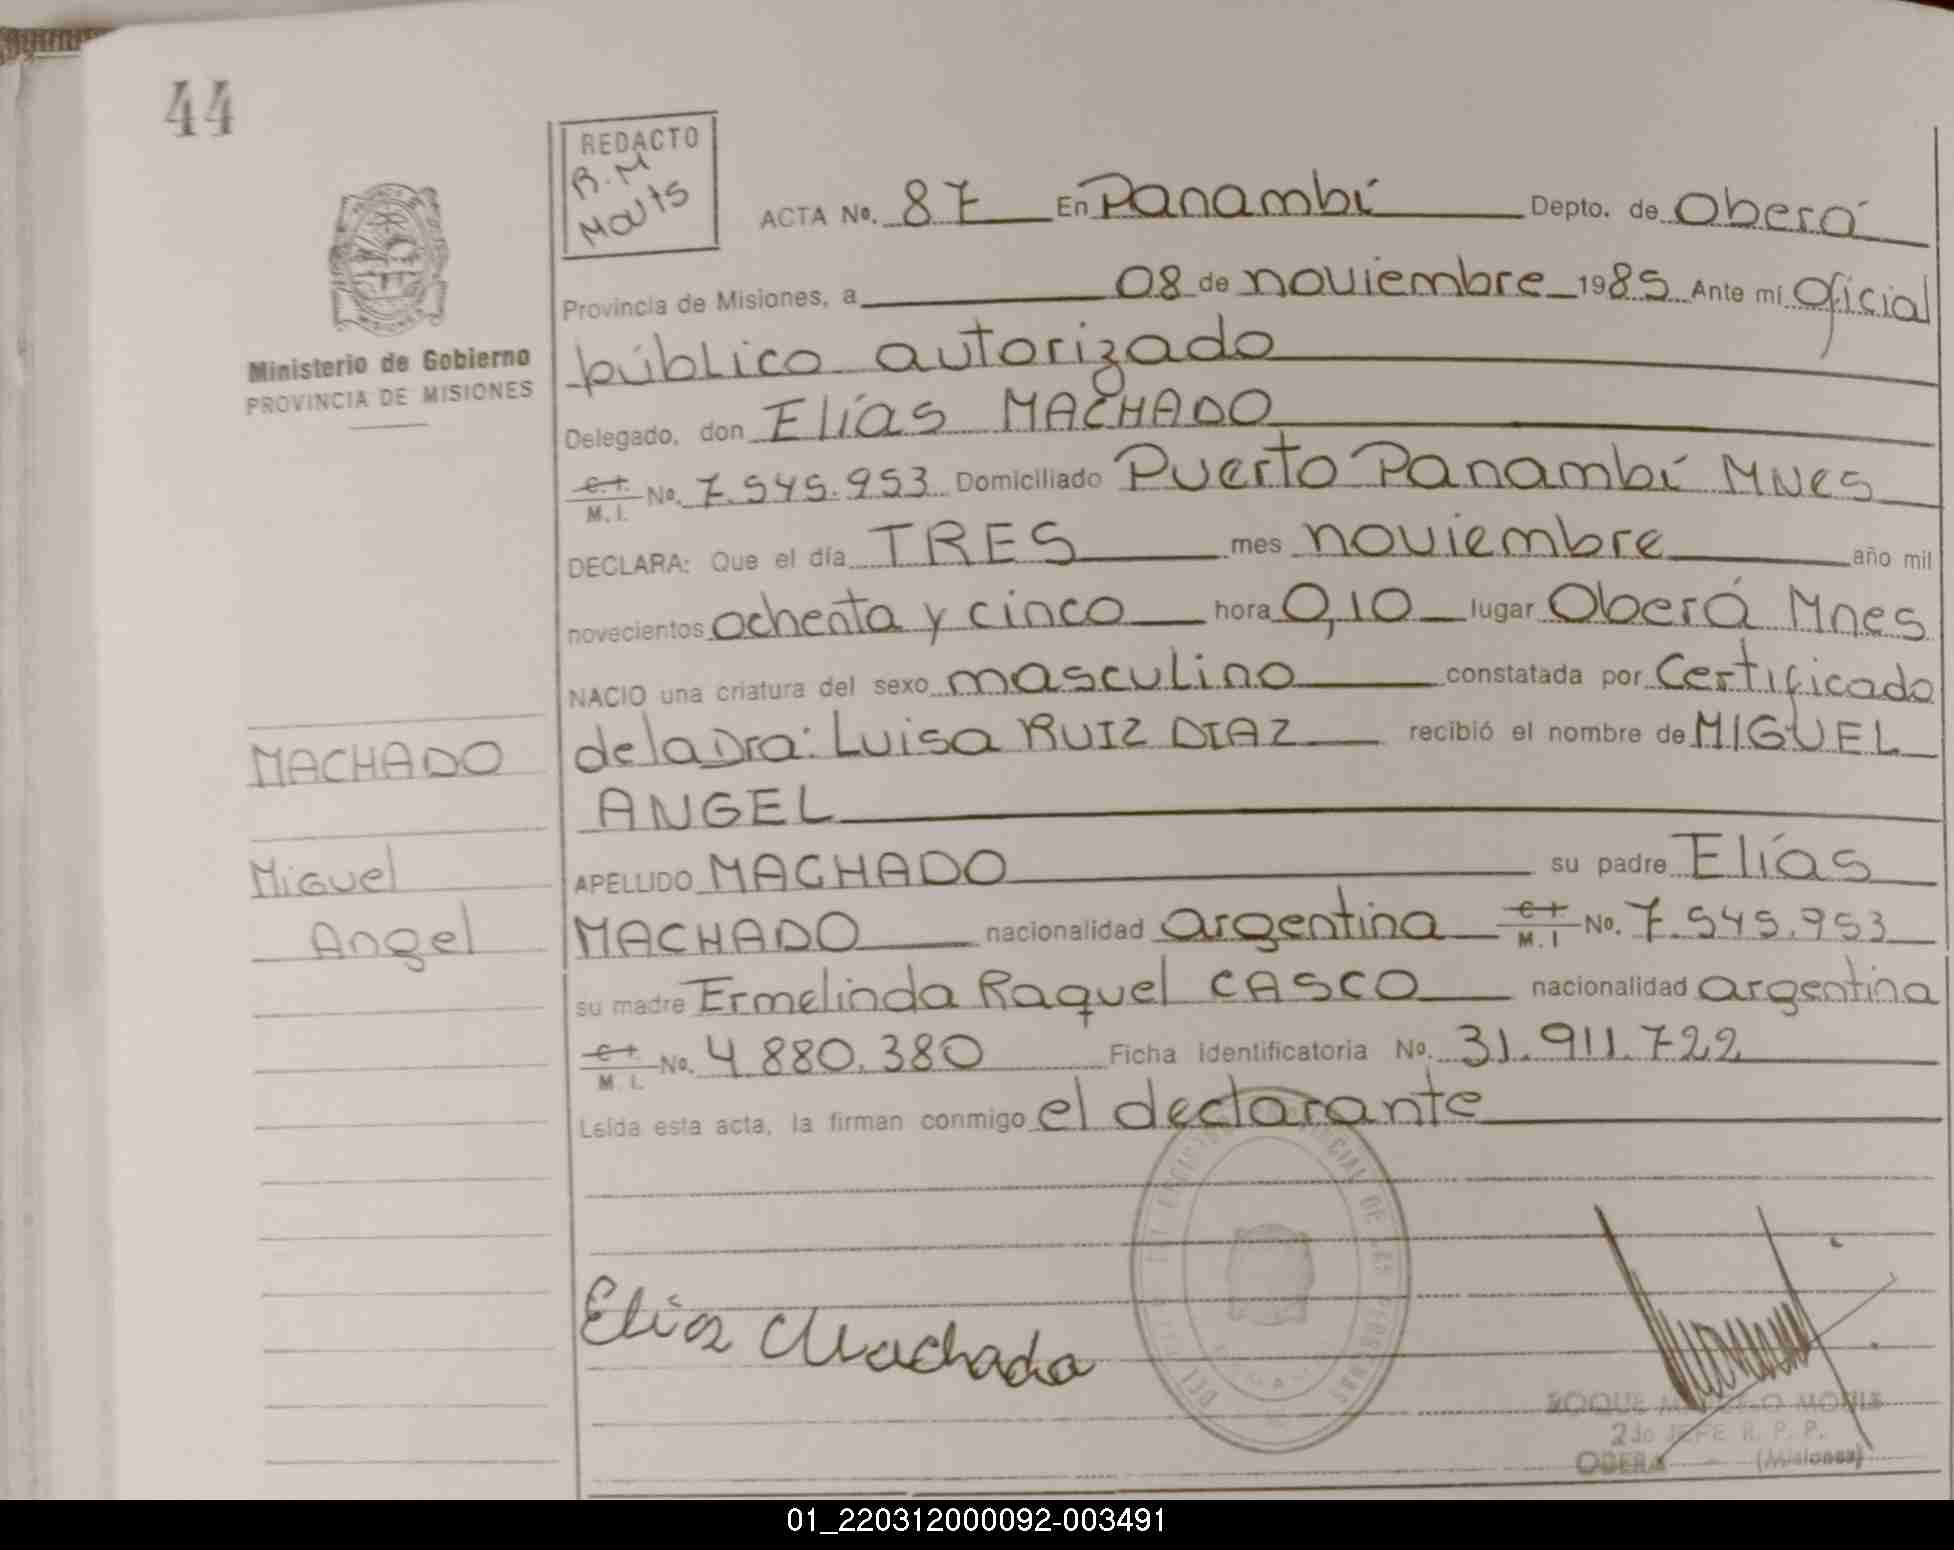 44
REDACTO
R.M
Mouts
ACTA No. 87 En Panambí Depto. de Oberá
Provincia de Misiones, a 08 de noviembre 1985 Ante mí Oficial
público autorizado
Ministerio de Gobierno
PROVINCIA DE MISIONES
Delegado, don Elías MACHADO
C.I. M.I. No. 7.545.953 Domiciliado Puerto Panambí MNES
DECLARA: Que el día TRES mes noviembre año mil
novecientos ochenta y cinco hora 0,10 lugar Oberá Mnes
NACIO una criatura del sexo masculino constatada por Certificado
de la Dra: Luisa RUIZ DIAZ recibió el nombre de MIGUEL
ANGEL
MACHADO
Miguel
Angel
APELLIDO MACHADO su padre Elías
MACHADO nacionalidad argentina C.I. M.I No. 7.545.953
su madre Ermelinda Raquel CASCO nacionalidad argentina
C.I. M.I. No. 4.880.380 Ficha identificatoria No. 31.911.722
Leída esta acta, la firman conmigo el declarante
Elias Machado
ROQUE
2do JEFE R. P. P.
OBERA - (Misiones)
01_220312000092-003491